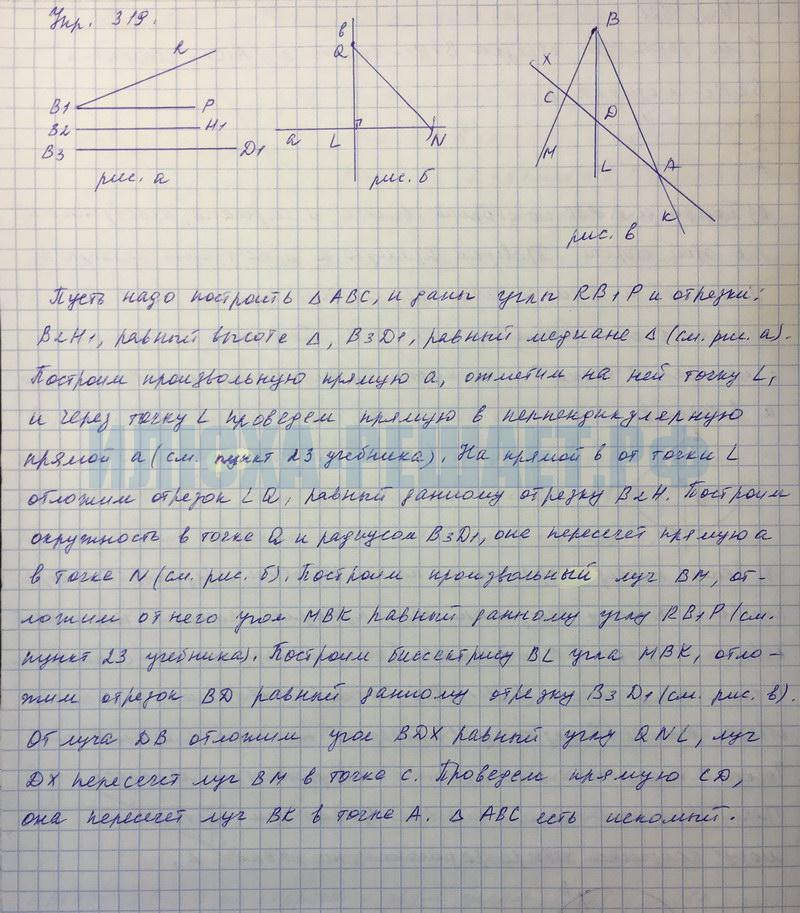 Упр. 319.
R
B1
P
B2
H1
B3
D1
рис. а
в
Q
a
L
N
рис. б
B
X
C
D
M
L
A
K
рис. в
Пусть надо построить △ ABC, и даны углы RB1P и отрезки:
B2H1, равный высоте △, B3D1, равный медиане △ (см. рис. а).
Построим произвольную прямую а, отметим на ней точку L,
и через точку L проведем прямую в перпендикулярную
прямой а (см. пункт 23 учебника). На прямой в от точки L
отложим отрезок LQ, равный данному отрезку B2H. Построим
окружность в точке Q и радиусом B3D1, оне пересечет прямую а
в точке N (см. рис. б). Построим произвольный луч BM, от-
ложим от него угол MBK равный данному углу RB1P (см.
пункт 23 учебника). Построим биссектрису BL угла MBK, отло-
жим отрезок BD равный данному отрезку B3D1 (см. рис. в).
От луча DB отложим угол BDX равный углу QNL, луч
DX пересечет луч BM в точке C. Проведем прямую CD,
она пересечет луч BK в точке A. △ ABC есть искомый.